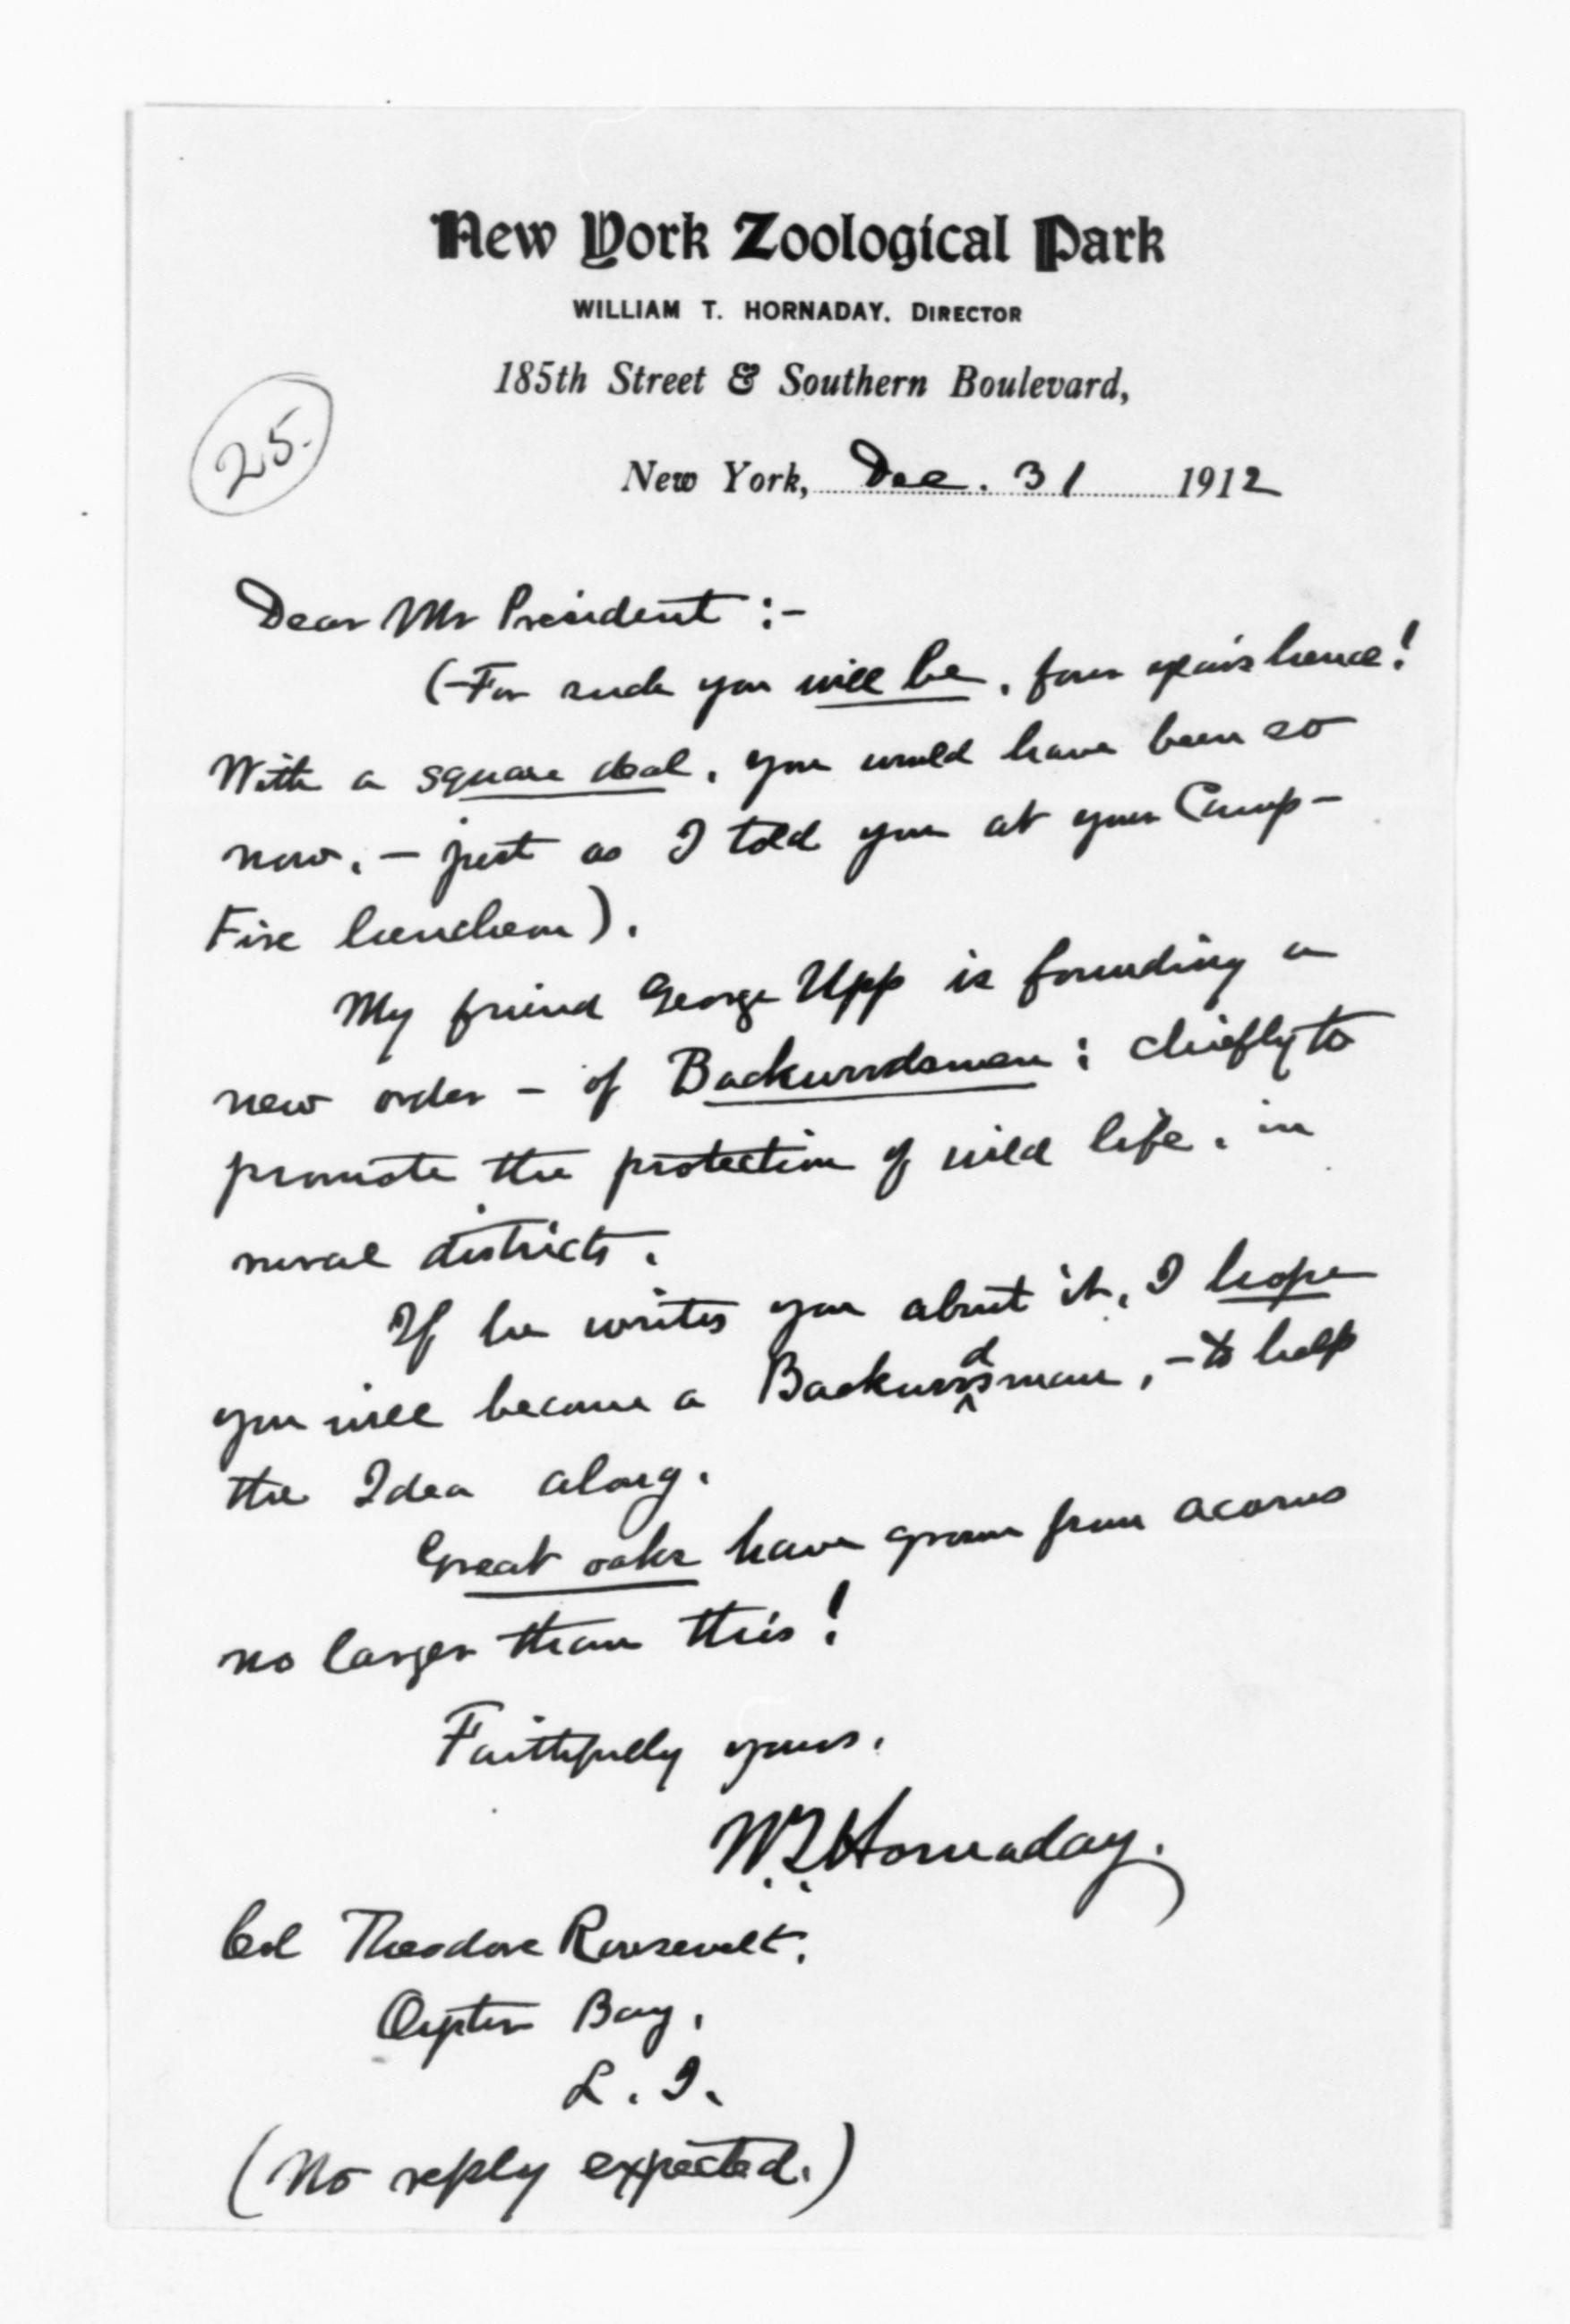 New York Zoological Park
WILLIAM T. HORNADAY, DIRECTOR
185th Street & Southern Boulevard,
25.
New York, Dec. 31 1912
Dear Mr President :-
(For such you will be, four years hence!
With a square deal, you would have been so
now, - just as I told you at your Camp-
Fire luncheon).
My friend George Upp is founding a
new order - of Backwoodsmen : chiefly to
promote the protection of wild life, in
rural districts.
If he writes you about it, I hope
you will become a Backwoodsman, - to help
the Idea along.
Great oaks have grown from acorns
no larger than this!
Faithfully yours,
W.T. Hornaday.
Col Theodore Roosevelt,
Oyster Bay,
L. I.
(No reply expected.)